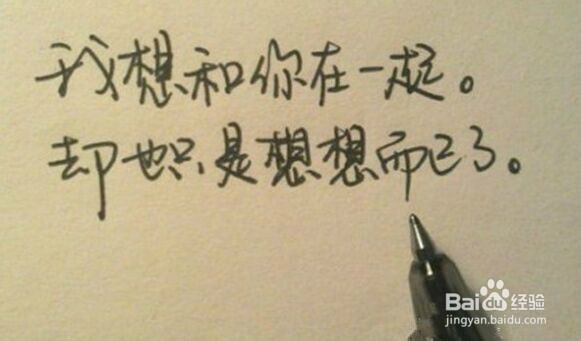 我想和你在一起。
却也只是想想而已了。
Bai du 经验
jingyan.baidu.com